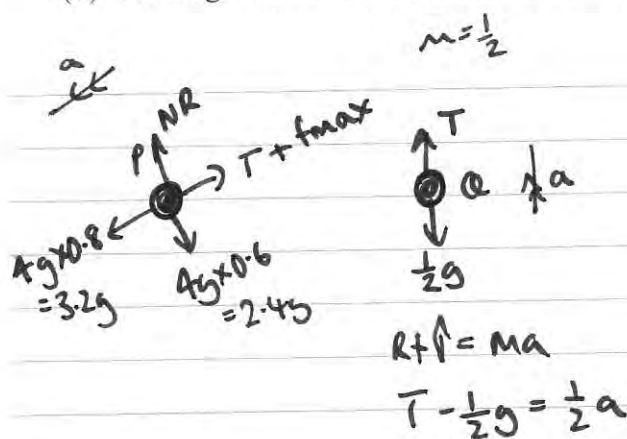 m=1/2
a
P NR
T + fmax
4g×0.8
=3.2g
4g×0.6
=2.4g
T
Q a
1/2g
R+↑=ma
T-1/2g=1/2a